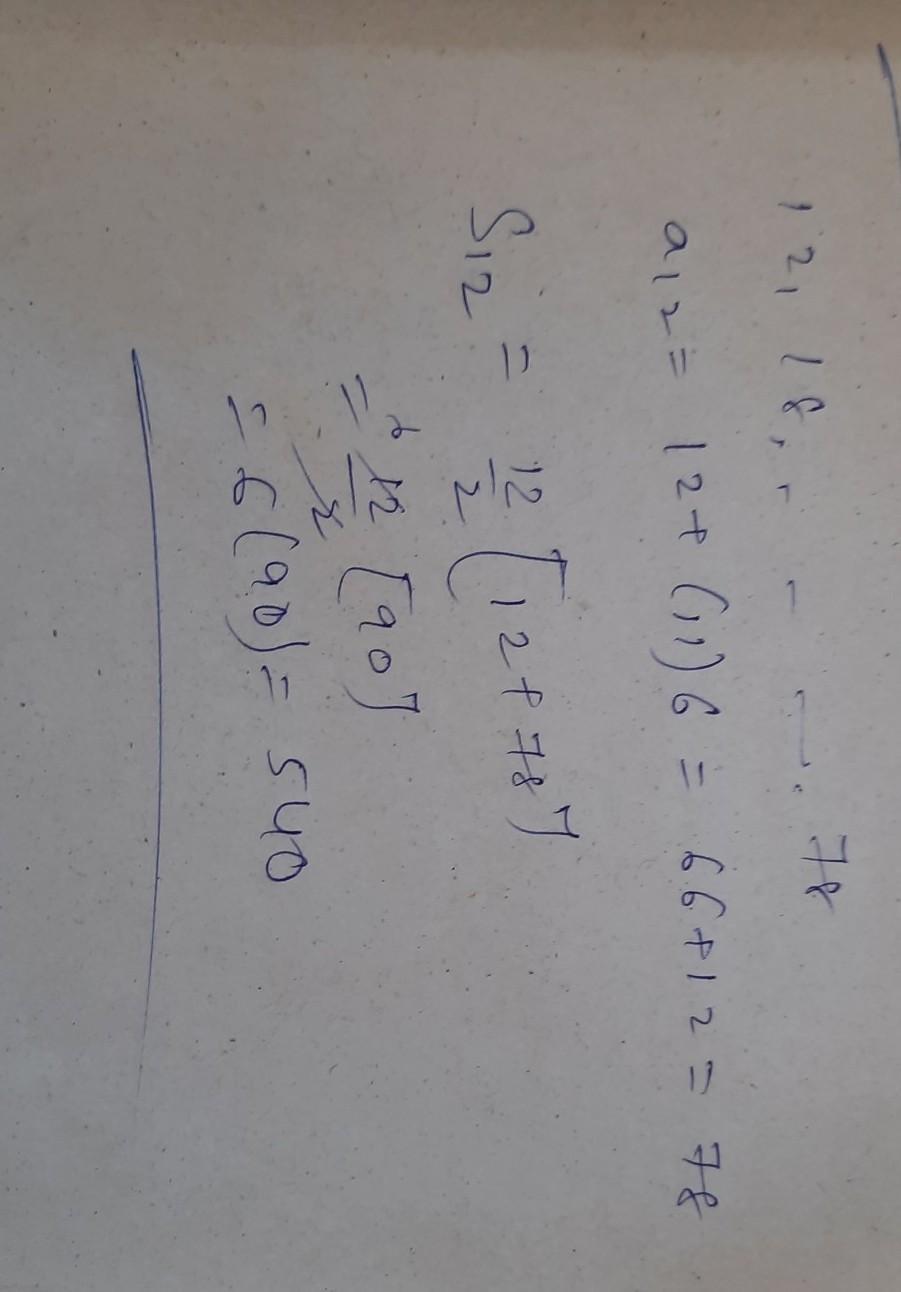 12, 18, - - -. 78
a12 = 12+ (11)6 = 66+12 = 78
S12 = 12/2 [12+78]
= 6 12/2 [90]
= 6(90) = 540